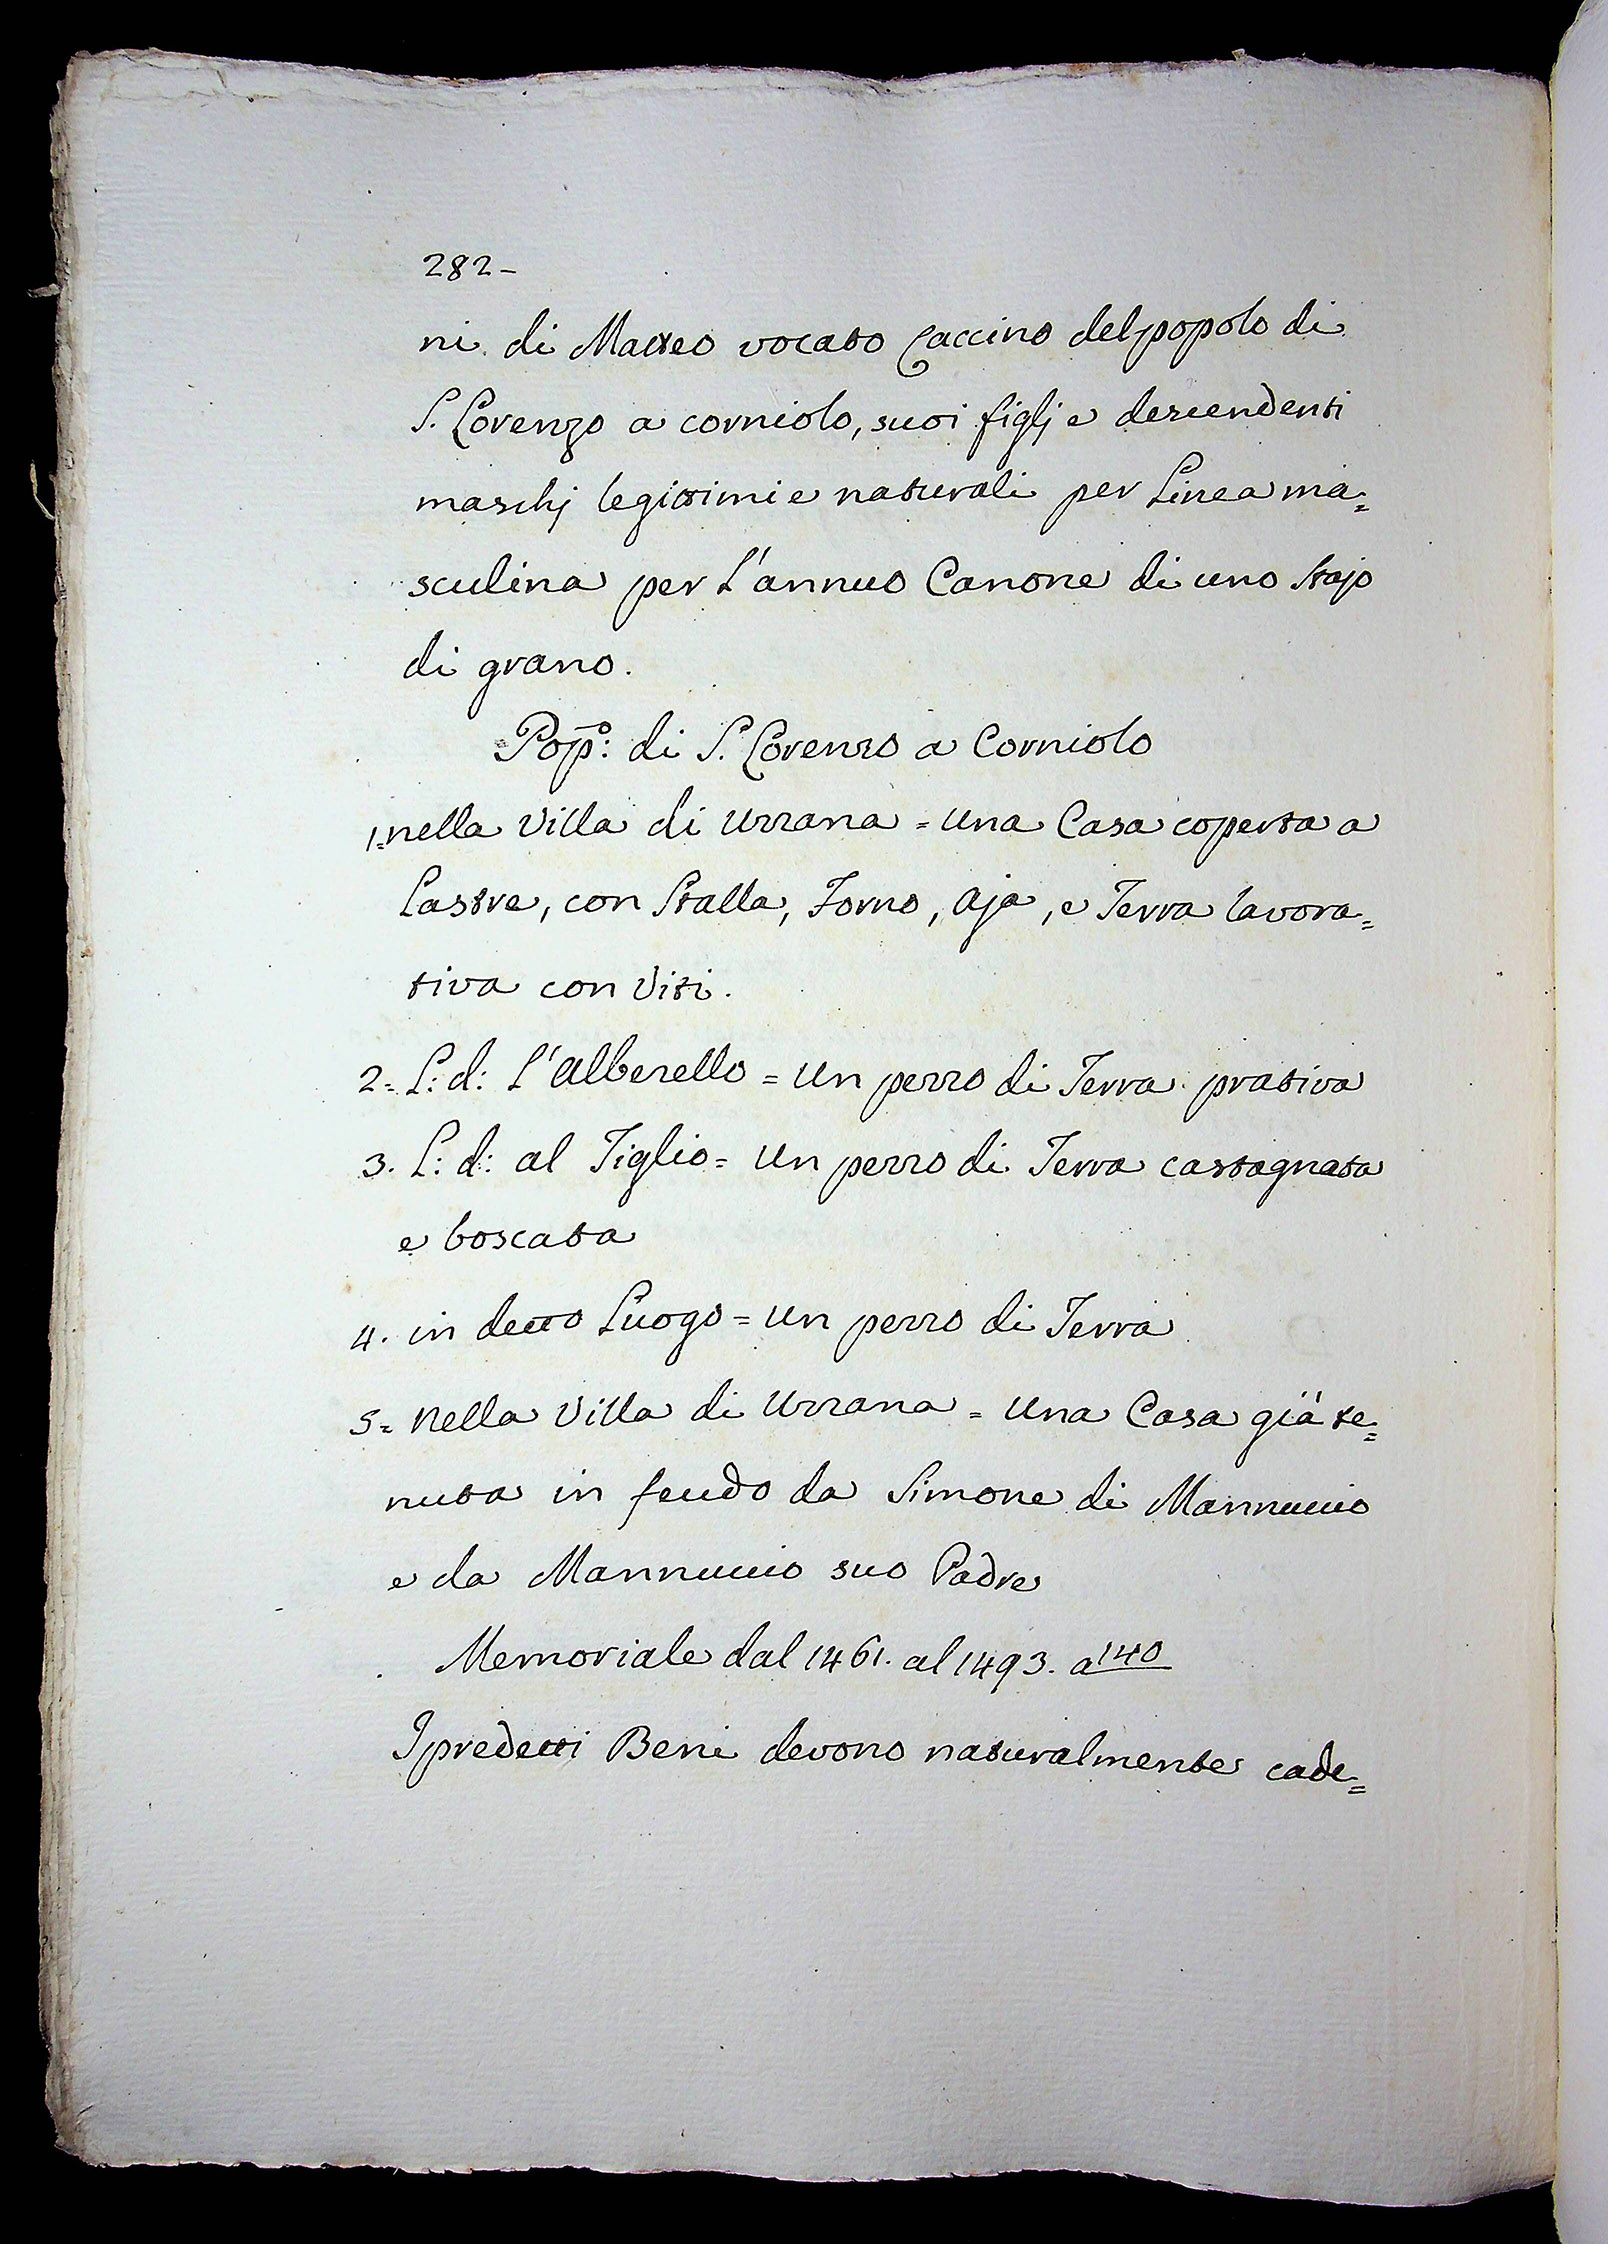 282-
ni di Matteo vocato Caccino del popolo di
S. Lorenzo a corniolo, suoi figlj e descendenti
maschj legittimi e naturali per Linea ma=
sculina per l'annuo Canone di uno Stajo
di grano.
Pop.º: di S. Lorenzo a Corniolo
1=nella Villa di Uzzana = una Casa coperta a
Lastre, con Stalla, Forno, aja, e Terra lavora=
tiva con Viti.
2= L: d: l'alberello = un pezzo di Terra prativa
3. L: d: al Tiglio = un pezzo di Terra castagnata
e boscata
4. in detto Luogo = un pezzo di Terra
5= nella Villa di Uzzana = una Casa già te=
nuta in feudo da Simone di Mannuccio
e da Mannuccio suo Padre
Memoriale dal 1461. al 1493. a 140
I predetti Beni devono naturalmente cade=